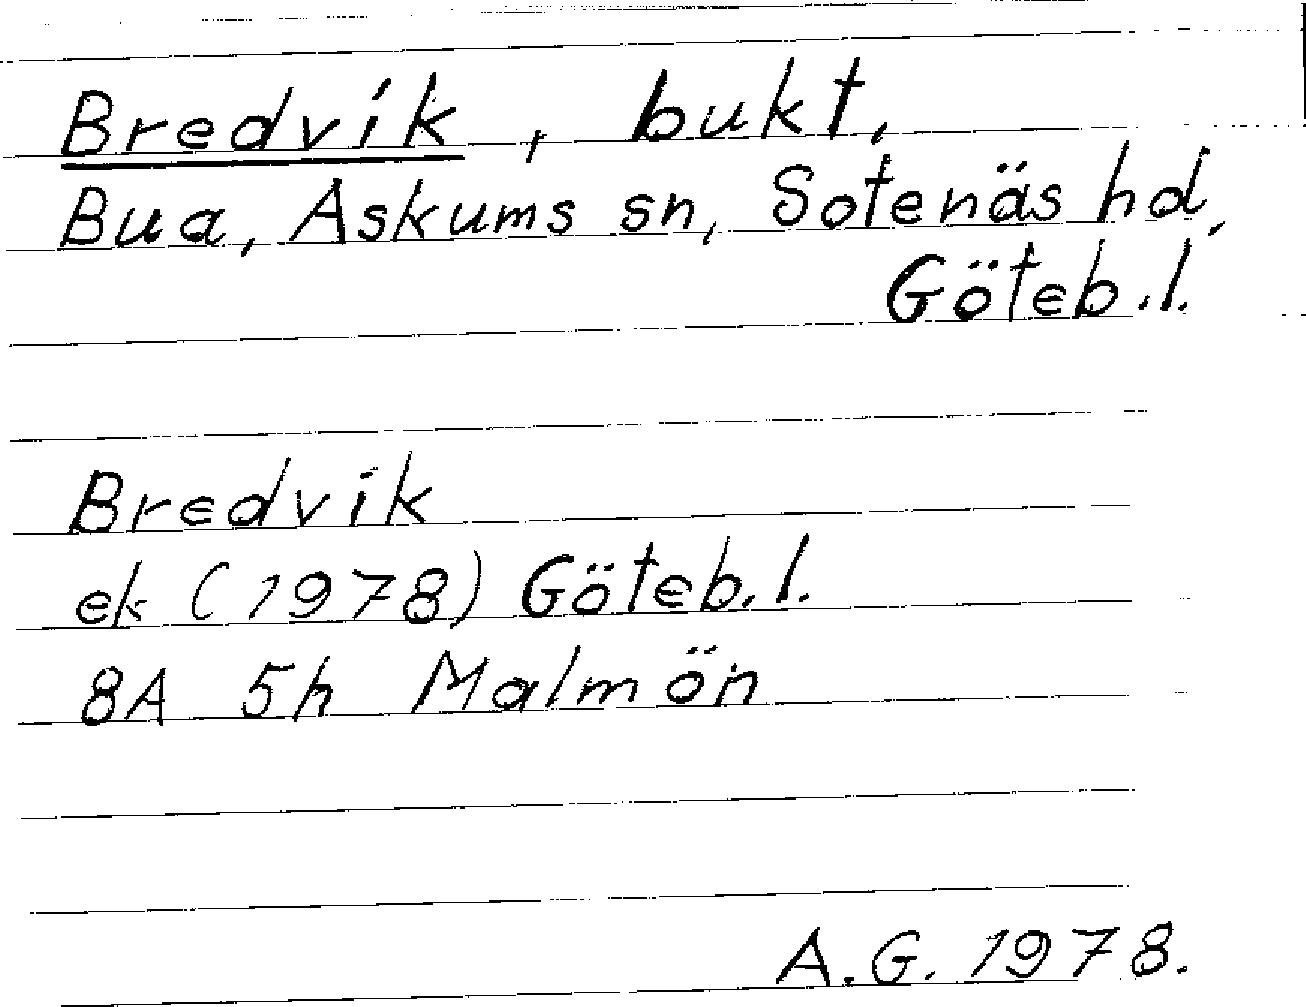 Bredvik, bukt,
Bua, Askums sn, Sotenäs hd,
Göteb.l.
Bredvik
ek (1978) Göteb.l.
8A 5h Malmön
A.G. 1978.